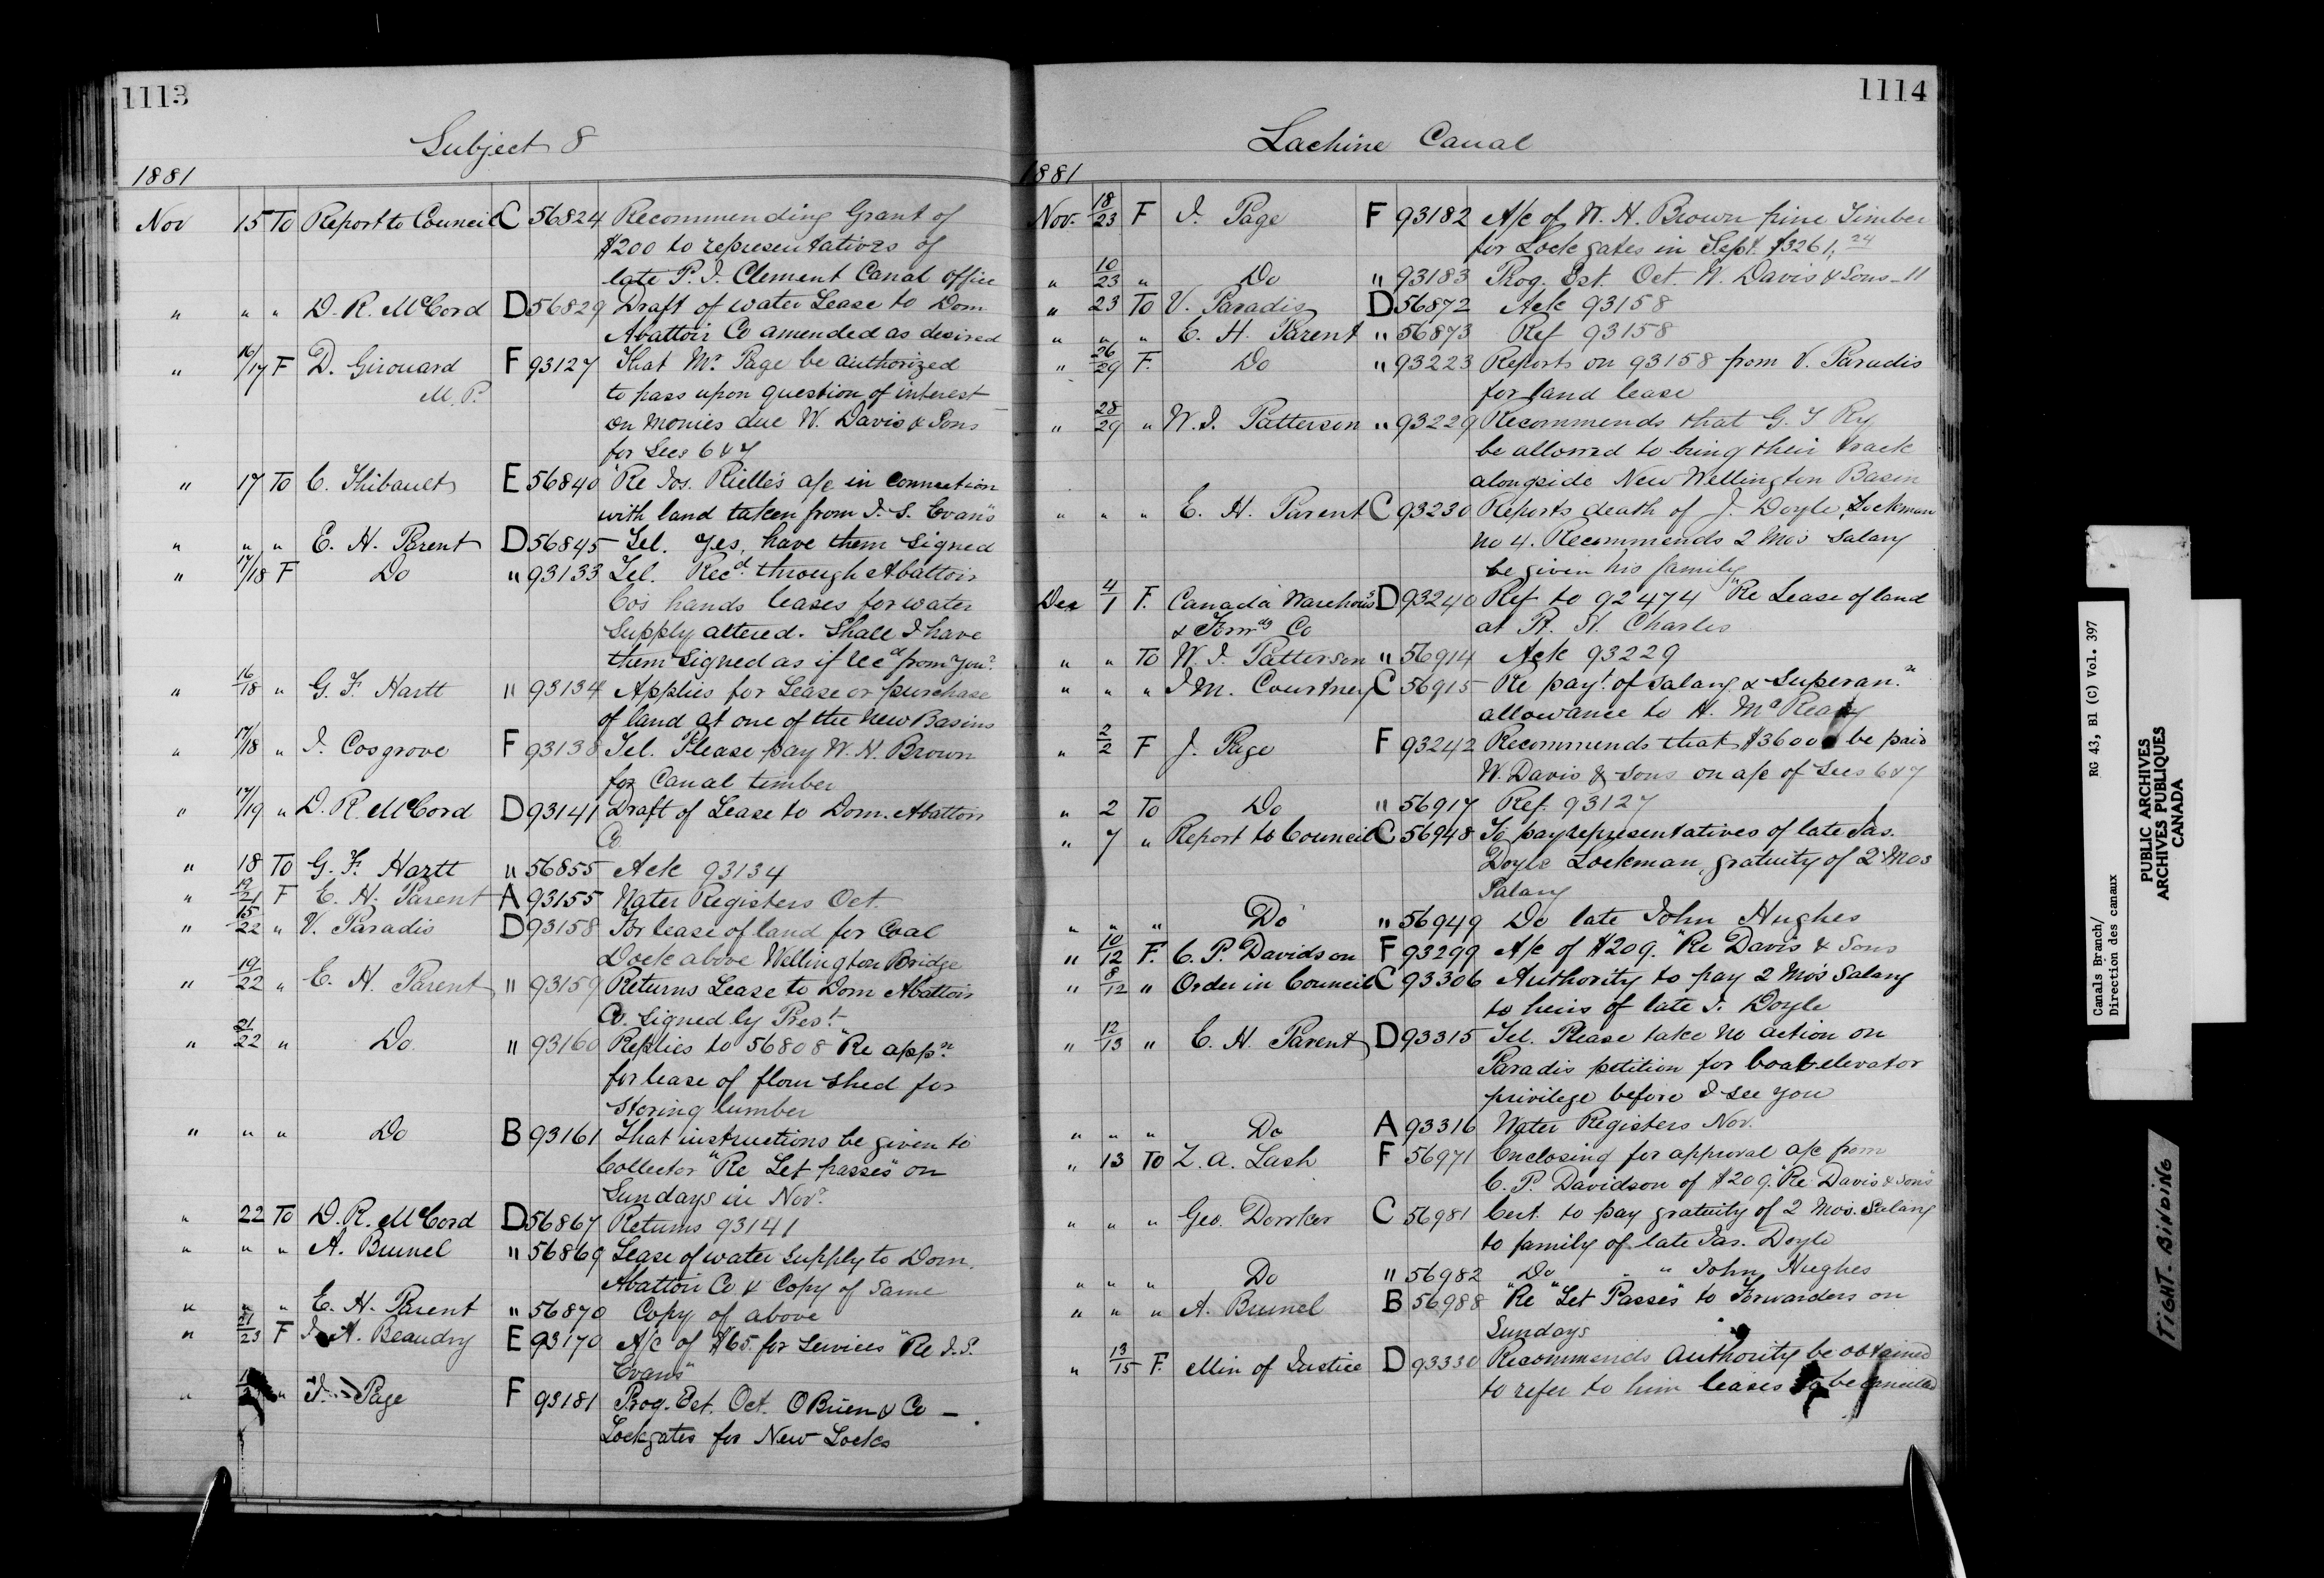 1113
Subject 8
1881
Nov 15 To Report to Council C 56824 Recommending Grant of
$200 to representatives of
late P. J. Clement Canal office
" " " D. R. McCord D 56829 Draft of water Lease to Dom
Abattoir Co amended as desired
" 16/17 F D. Girouard F 93127 That Mr Page be authorized
M. P. to pass upon question of interest
on monies due W. Davis & Sons
for Secs 6 & 7
" 17 To C. Thibault E 56840 "Re Jos. Rielle's a/c in connection
with land taken from J. S. Evans"
" " " E. H. Parent D 56845 Tel. Yes, have them signed
" 17/18 F Do " 93133 Tel. Recd through Abattoir
Co's hands leases for water
supply altered. Shall I have
them signed as if recd from you?
" 16/18 " G. F. Hartt " 93134 Applies for Lease or purchase
of land at one of the New Basins
" 17/18 " J. Cosgrove F 93138 Tel. Please pay W. H. Brown
for Canal timber
" 17/19 " D. R. McCord D 93141 Draft of Lease to Dom. Abattoir
Co
" 18 To G. F. Hartt " 56855 Ack 93134
" 19/21 F E. H. Parent A 93155 Water Registers Oct.
" 15/22 " V. Paradis D 93158 For lease of land for Coal
Dock above Wellington Bridge
" 19/22 " E. H. Parent " 93159 Returns Lease to Dom Abattoir
Co. signed by Prest
" 21/22 " Do " 93160 Replies to 56808 "Re appn
for lease of flour shed for
storing lumber
" " " Do B 93161 That instructions be given to
Collector "Re Let passes" on
Sundays in Novr
" 22 To D. R. McCord D 56867 Returns 93141
" " " A. Brunel " 56869 Lease of water supply to Dom.
Abattoir Co & Copy of same
" " " E. H. Parent " 56870 Copy of above
" 21/23 F J. A. Beaudry E 93170 A/c of $65. for services "Re J. S.
Evans"
" " J. Page F 93181 Prog. Est. Oct. O'Brien & Co –
Lockgates for New Locks
1114
Lachine Canal
1881
Nov. 18/23 F J. Page F 93182 A/c of W. H. Brown pine Timber
for Lock gates in Sept. $3261.24
" 10/23 " Do " 93183 Prog. Est. Oct. W. Davis & Sons – 11
" 23 To V. Paradis D 56872 Ack 93158
" " " E. H. Parent " 56873 Ref 93158
" 26/29 F. Do " 93223 Reports on 93158 from V. Paradis
for land lease
" 28/29 " W. J. Patterson " 93229 Recommends that G. T Ry
be allowed to bring their track
alongside New Wellington Basin
" " " E. H. Parent C 93230 Reports death of J. Doyle, Lockman
No 4. Recommends 2 Mos Salary
be given his family
Dec 4/1 F. Canada Warehous'g D 93240 Ref to 92474 "Re Lease of land
& Forwdg Co at Pt. St. Charles
" " To W. J. Patterson " 56914 Ack 93229
" " " J M. Courtney C 56915 Re payt of Salary & Superann
allowance to H. McKeay
" 2/2 F J. Page F 93242 Recommends that $3600 be paid
W. Davis & Sons on a/c of Secs 6 & 7
" 2 To Do " 56917 Ref. 93127
" 7 " Report to Council C 56948 To pay representatives of late Jas.
Doyle Lockman, gratuity of 2 Mos
Salary
" " " Do " 56949 Do late John Hughes
" 10/12 F. C. P. Davidson F 93299 A/c of $209. "Re Davis & Sons
" 8/12 " Order in Council C 93306 Authority to pay 2 Mos Salary
to heirs of late J. Doyle
" 12/13 " E. H. Parent D 93315 Tel. Please take no action on
Paradis petition for boat elevator
privilege before I see you
" " " Do A 93316 Water Registers Nov.
" 13 To Z. A. Lash F 56971 Enclosing for approval a/c from
C. P. Davidson of $209. "Re Davis & Sons"
" " " Geo. C 56981 Cert. to pay gratuity of 2 Mos. Salary
to family of late Jas. Doyle
" " " Do " 56982 Do " " John Hughes
" " " A. Brunel B 56988 "Re "Let Passes" to Forwarders on
Sundays
" 13/15 F. Min of Justice D 93330 Recommends authority be obtained
to refer to him leases to be cancelled
Canals Branch/ RG 43, B1 (C) Vol. 397
Direction des canaux
PUBLIC ARCHIVES
ARCHIVES PUBLIQUES
CANADA
TIGHT BINDING